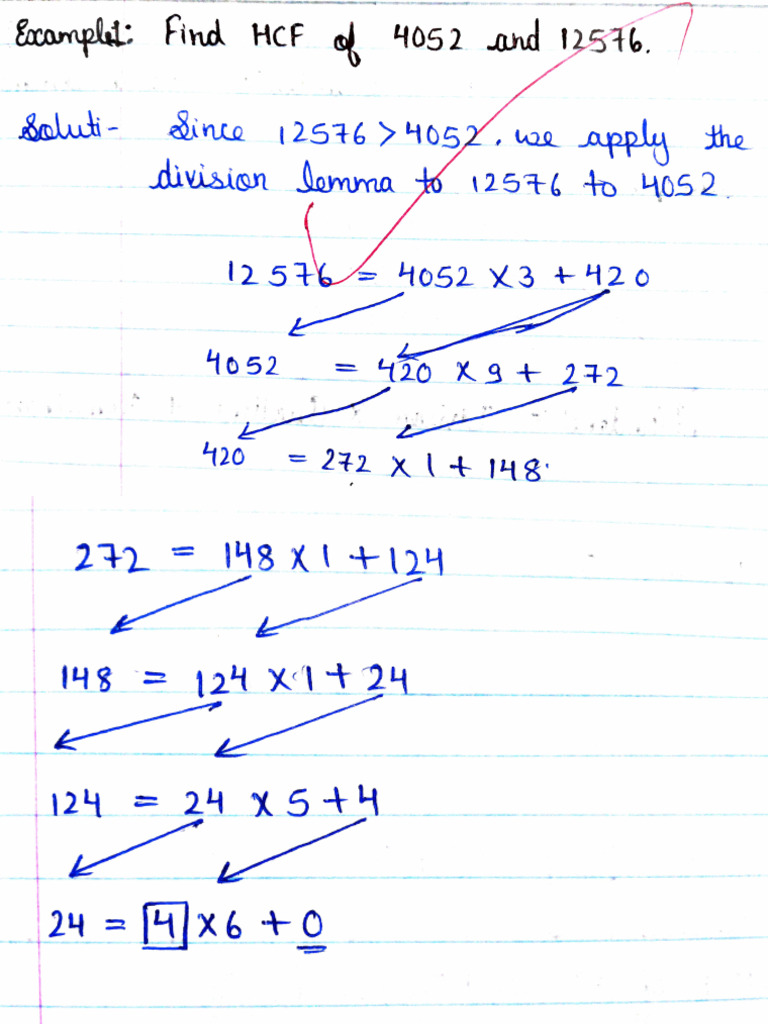 Example1: Find HCF of 4052 and 12576.
Soluti- Since 12576 > 4052, we apply the
division lemma to 12576 to 4052.
12576 = 4052 × 3 + 420
4052 = 420 × 9 + 272
420 = 272 × 1 + 148
272 = 148 × 1 + 124
148 = 124 × 1 + 24
124 = 24 × 5 + 4
24 = 4 × 6 + 0